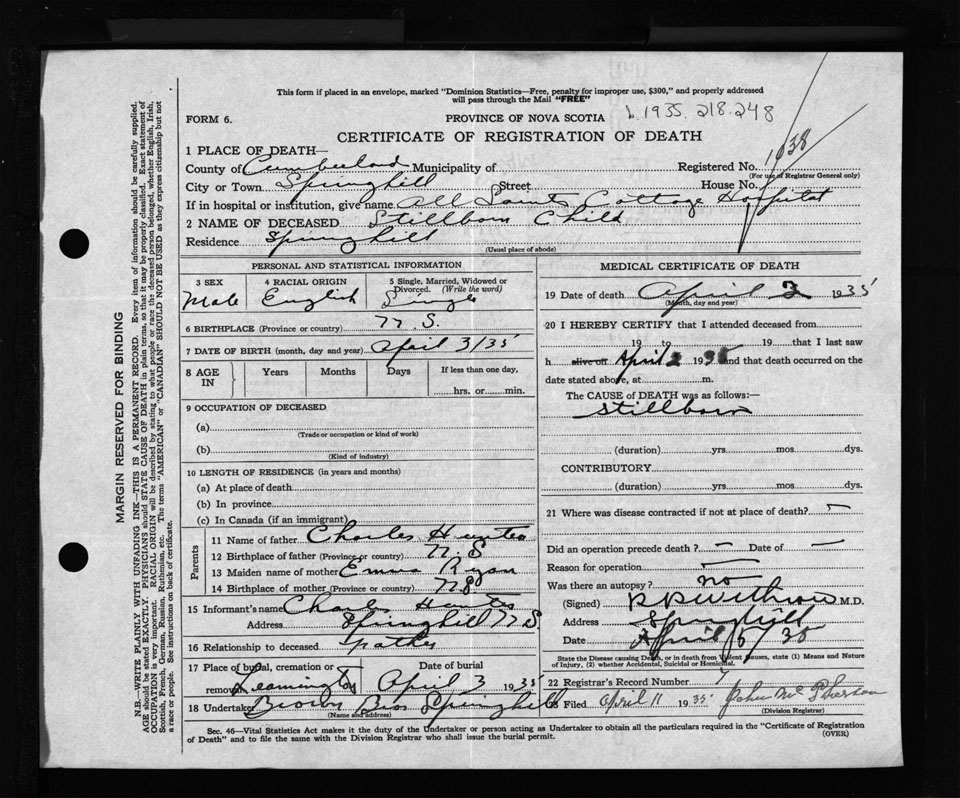 This form if placed in an envelope, marked "Dominion Statistics—Free, penalty for improper use, $300," and properly addressed
will pass through the Mail "FREE"
b. 1935. 218.248
FORM 6.
PROVINCE OF NOVA SCOTIA
CERTIFICATE OF REGISTRATION OF DEATH
1 PLACE OF DEATH—
County of Cumberland Municipality of
Registered No. 1038
(For use of Registrar General only)
City or Town Springhill Street House No.
If in hospital or institution, give name All Saints Cottage Hospital
2 NAME OF DECEASED Stillborn Child
Residence Springhill
(Usual place of abode)
PERSONAL AND STATISTICAL INFORMATION
3 SEX
Male
4 RACIAL ORIGIN
English
5 Single, Married, Widowed or
Divorced. (Write the word)
Single
6 BIRTHPLACE (Province or country) N.S.
7 DATE OF BIRTH (month, day and year) April 3/35
8 AGE
IN
Years Months Days If less than one day,
hrs. or min.
9 OCCUPATION OF DECEASED
(a)
(Trade or occupation or kind of work)
(b)
(Kind of industry)
10 LENGTH OF RESIDENCE (in years and months)
(a) At place of death
(b) In province
(c) In Canada (if an immigrant)
Parents
11 Name of father Charles Hunter
12 Birthplace of father (Province or country) N.S
13 Maiden name of mother Emma Ryan
14 Birthplace of mother (Province or country) N.S
15 Informant's name Charles Hunter
Address Springhill N.S.
16 Relationship to deceased Father
17 Place of burial, cremation or removal Leamington
Date of burial
April 3 1935
18 Undertaker Brown Bros Springhill
(Name and address)
MEDICAL CERTIFICATE OF DEATH
19 Date of death April 2 1935
(Month, day and year)
20 I HEREBY CERTIFY that I attended deceased from
19 to 19 that I last saw
h alive on April 2 1935 and that death occurred on the
date stated above, at m.
The CAUSE of DEATH was as follows:—
Stillborn
(duration) yrs. mos. dys.
CONTRIBUTORY
(duration) yrs. mos. dys.
21 Where was disease contracted if not at place of death? —
Did an operation precede death? — Date of —
Reason for operation —
Was there an autopsy? no
(Signed) Withrow M.D.
Address Springhill
Date April 5/35
State the Disease causing Death, or in death from Violent Causes, state (1) Means and Nature
of Injury, (2) whether Accidental, Suicidal or Homicidal.
22 Registrar's Record Number 7
23 Filed April 11 1935 John McPherson
(Division Registrar)
Sec. 46—Vital Statistics Act makes it the duty of the Undertaker or person acting as Undertaker to obtain all the particulars required in the "Certificate of Registration
of Death" and to file the same with the Division Registrar who shall issue the burial permit.
(OVER)
MARGIN RESERVED FOR BINDING
N.B.—WRITE PLAINLY WITH UNFADING INK—THIS IS A PERMANENT RECORD. Every item of information should be carefully supplied.
AGE should be stated EXACTLY. PHYSICIANS should STATE CAUSE OF DEATH in plain terms, so that it may be properly classified. Exact statement of
OCCUPATION is very important. RACIAL ORIGIN will be described by stating to what people or race the deceased person belonged, whether English, Irish,
Scottish, French, German, Russian, Ruthenian, etc. The terms "AMERICAN" or "CANADIAN" SHOULD NOT BE USED as they express citizenship but not
a race or people. See instructions on back of certificate.